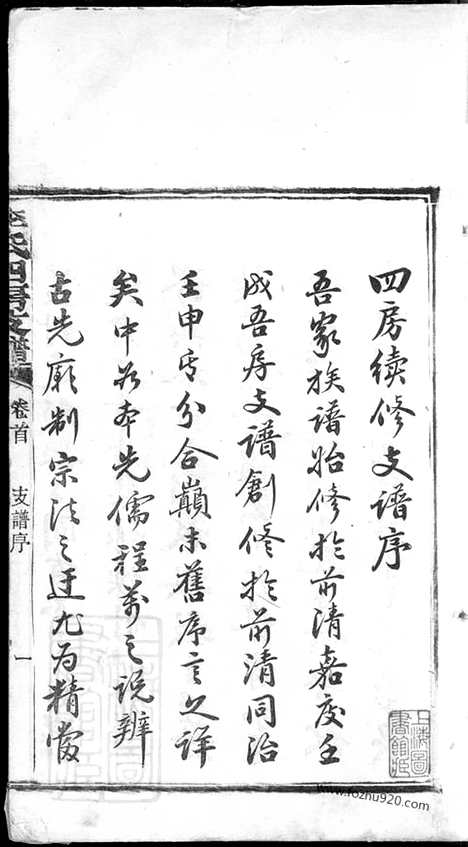 四房續修支譜序
吾家族譜始修於前清嘉慶壬
戌吾房支譜創修於前清同治
壬申其分合顛末舊序言之詳
矣中於本先儒程萬之說辨
古先廟制宗法之迂尤為精當
氏四房支譜
卷首
支譜序
一
上海圖書館藏
www.fozhu920.com